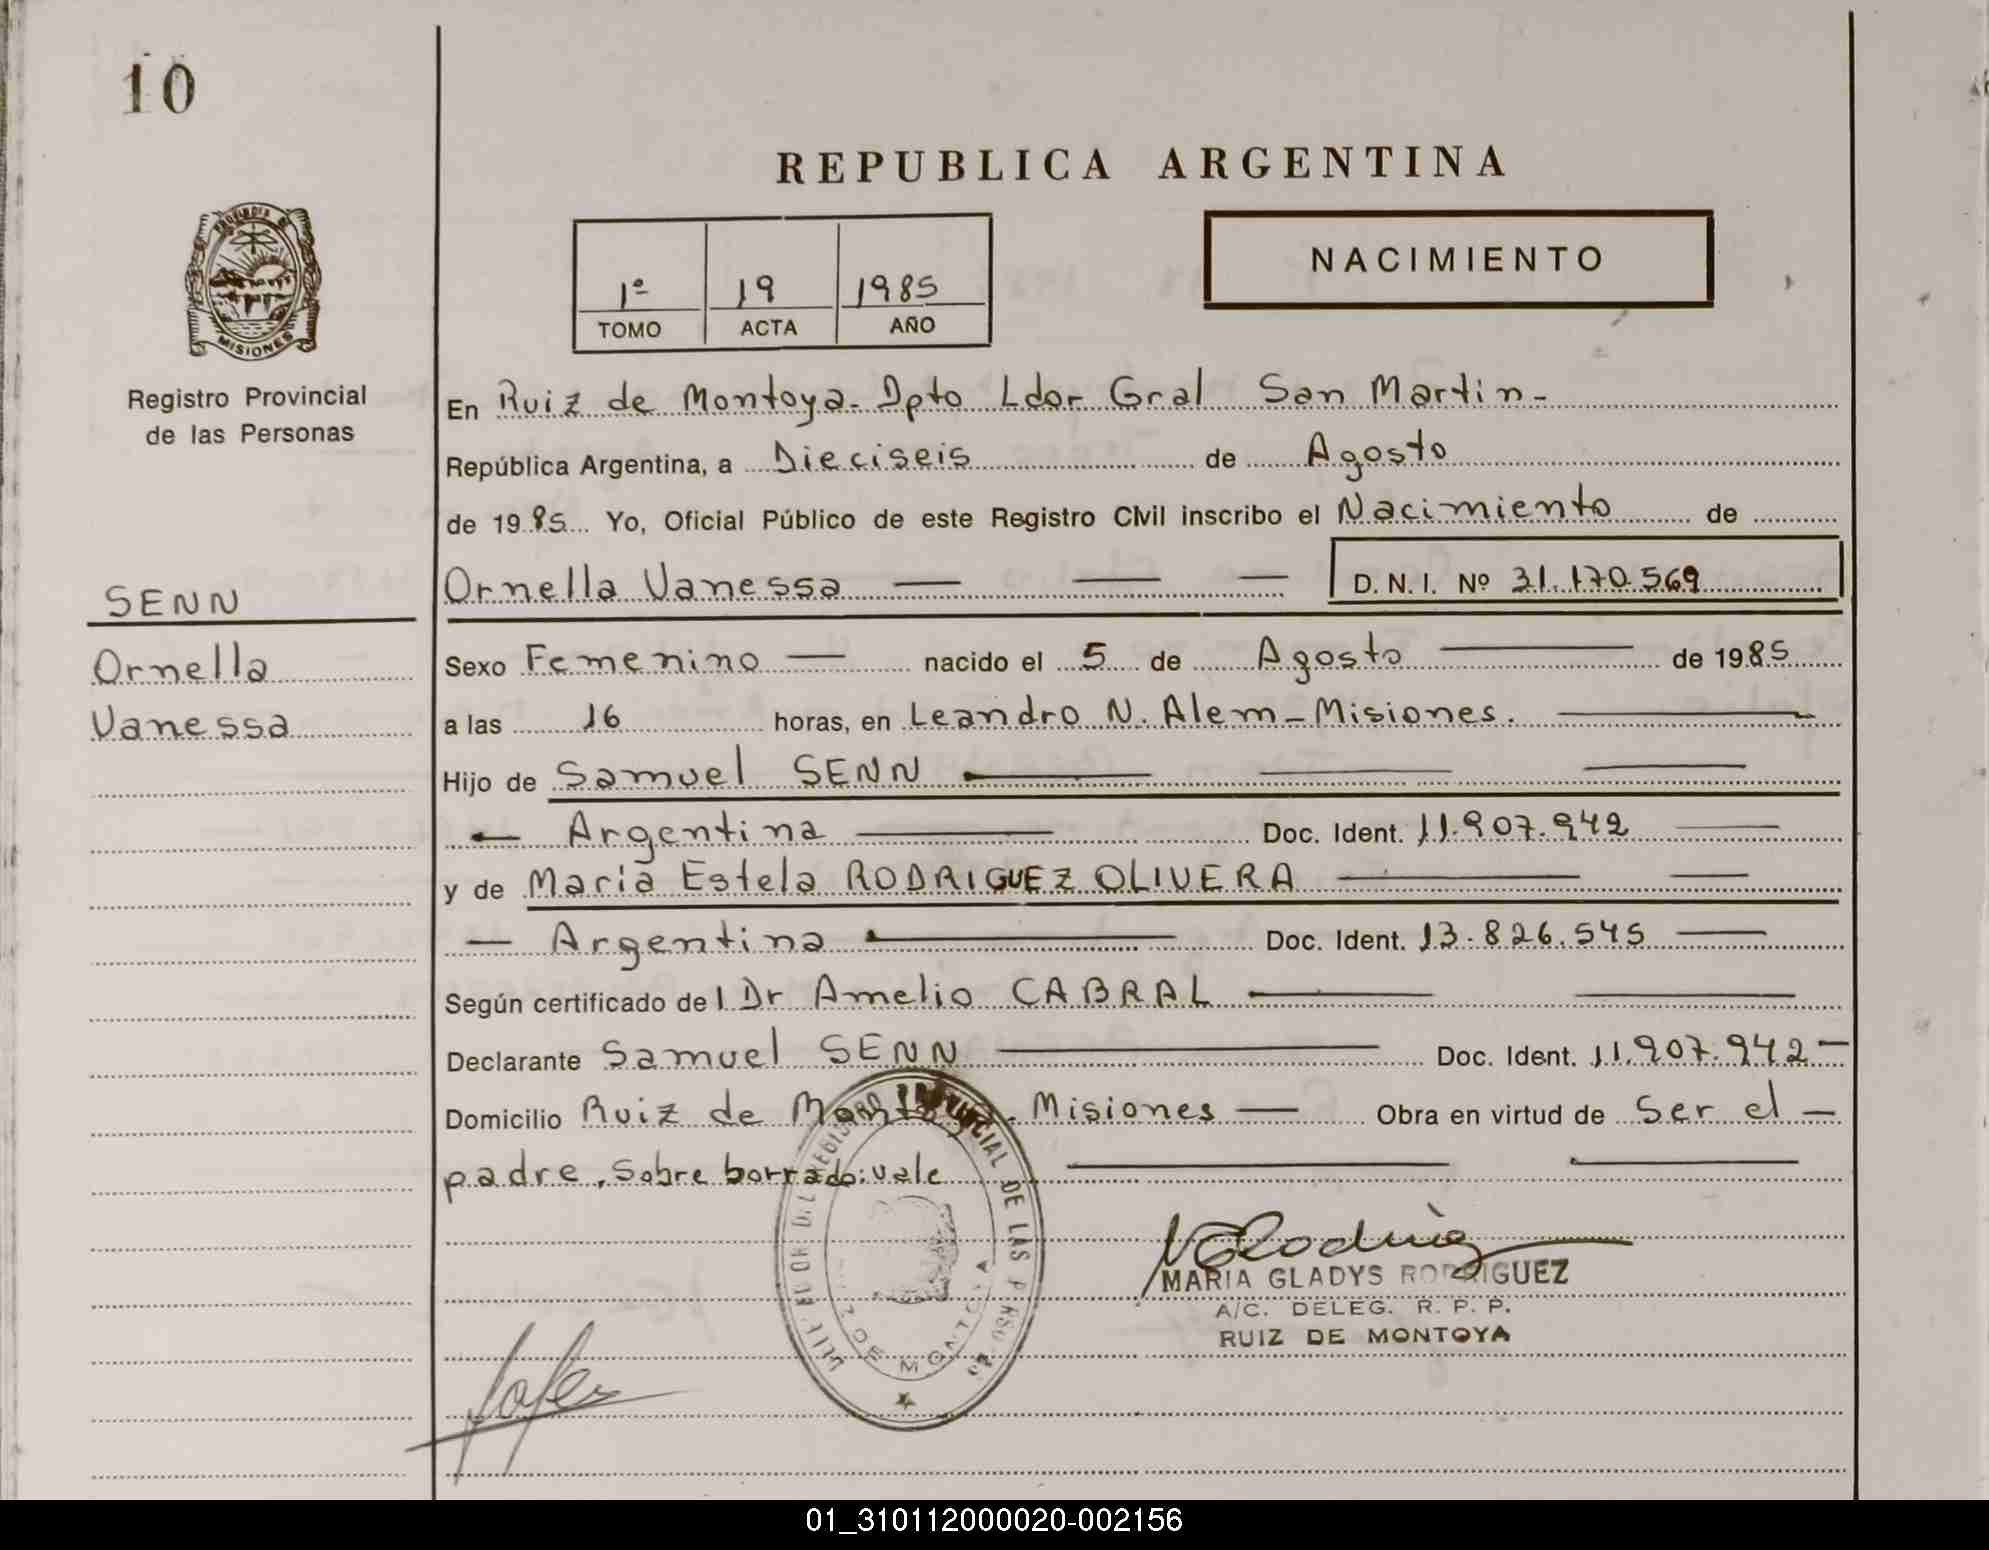 10
REPUBLICA ARGENTINA
PROVINCIA DE
MISIONES
Registro Provincial
de las Personas
1º 19 1985
TOMO ACTA AÑO
NACIMIENTO
En Ruiz de Montoya. Dpto Ldor Gral San Martin-
República Argentina, a Dieciseis de Agosto
de 1985 Yo, Oficial Público de este Registro Civil inscribo el Nacimiento de
SENN
Ornella
Vanessa
Ornella Vanessa — — — D. N. I. Nº 31.170.569
Sexo Femenino — nacido el 5 de Agosto — de 1985
a las 16 horas, en Leandro N. Alem - Misiones. —
Hijo de Samuel SENN — — —
— Argentina — Doc. Ident. 11.907.942 —
y de Maria Estela RODRIGUEZ OLIVERA — —
— Argentina — Doc. Ident. 13.826.545 —
Según certificado del Dr Amelio CABRAL — —
Declarante Samuel SENN — Doc. Ident. 11.907.942 —
Domicilio Ruiz de Montoya. Misiones — Obra en virtud de Ser el —
padre, Sobre borrado: vale — —
DE LAS
DE MONTOYA
MARIA GLADYS RODRIGUEZ
A/C. DELEG. R. P. P.
RUIZ DE MONTOYA
01_310112000020-002156